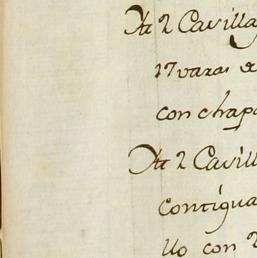 Ytt 2 Cavilla
17 varas de
con chapa
Ytt 2 Cavill
contigua
llo con 2